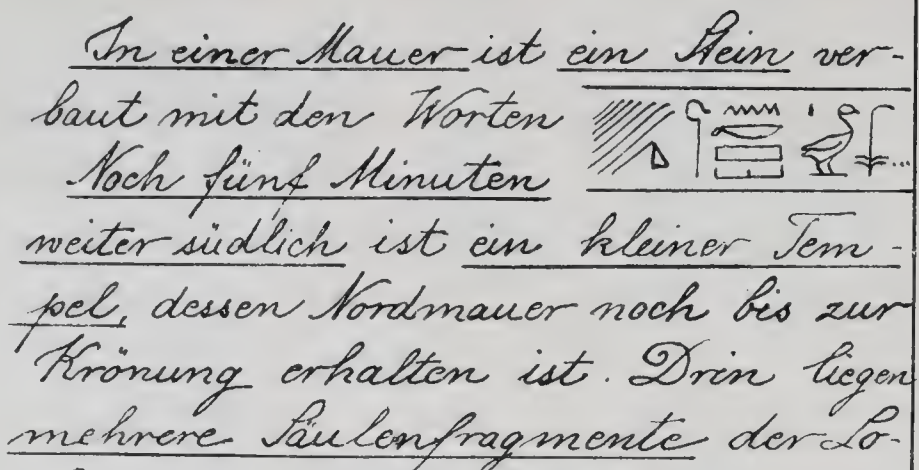 In einer Mauer ist ein Stein ver-
baut mit den Worten
Noch fünf Minuten
weiter südlich ist ein kleiner Tem-
pel, dessen Nordmauer noch bis zur
Krönung erhalten ist. Drin liegen
mehrere Säulenfragmente der Lo-